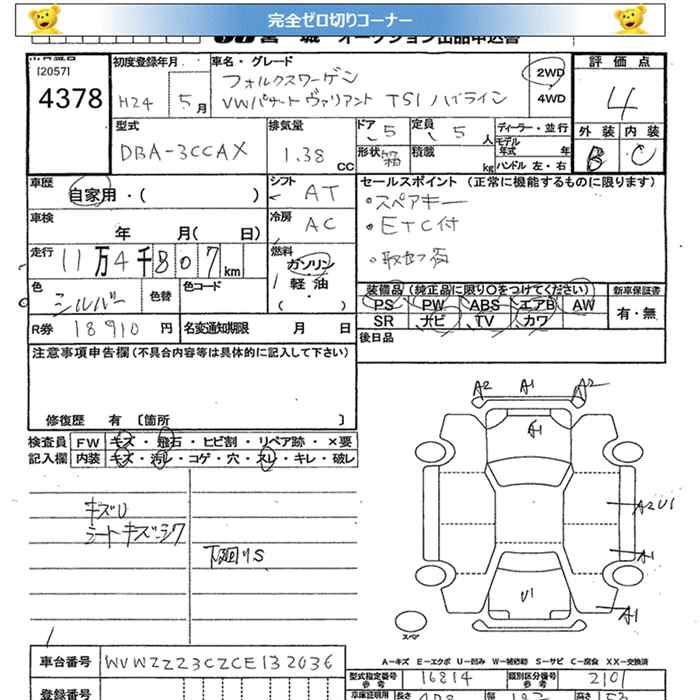 完全ゼロ切りコーナー
宮城 オークション出品申込書
[2057]
4378
初度登録年月
H24 5月
車名・グレード
フォルクスワーゲン
VWパサートヴァリアント TSI ハイライン
2WD
4WD
評価点
4
外装 内装
B C
型式
DBA-3CCAX
排気量
1.38 CC
ドア 5
定員 5 人
形状 箱
積載 kg
ディーラー・並行
モデル年式 年
ハンドル 左・右
車歴
自家用・( )
シフト
AT
セールスポイント (正常に機能するものに限ります)
・スペアキー
・ETC付
・取説有
車検
年 月( 日)
冷房
AC
走行
11万4千807km
燃料
ガソリン
軽油
・( )
色
シルバー
色替
色コード
装備品 (純正品に限り○をつけてください)
新車保証書
PS PW ABS エアB AW
有・無
SR ナビ TV カワ
R券 18910 円
名変通知期限 月 日
後日品
注意事項申告欄(不具合内容等は具体的に記入して下さい)
修復歴 有 〔箇所 〕
検査員 FW キズ・飛石・ヒビ割・リペア跡・×要
記入欄 内装 キズ・汚レ・コゲ・穴・スレ・キレ・破レ
キズU
シートキズ・シワ
下廻りS
A2 A1 A2
A1
A2U1
A1
U1
A1
スペア
A−キズ E−エクボ U−凹み W−補修跡 S−サビ C−腐食 XX−交換済
車台番号 WVWZZZ3CZCE132036
型式指定番号 参考 16814
類別区分番号 参考 2101
登録番号
車庫証明用
長さ
幅
高さ